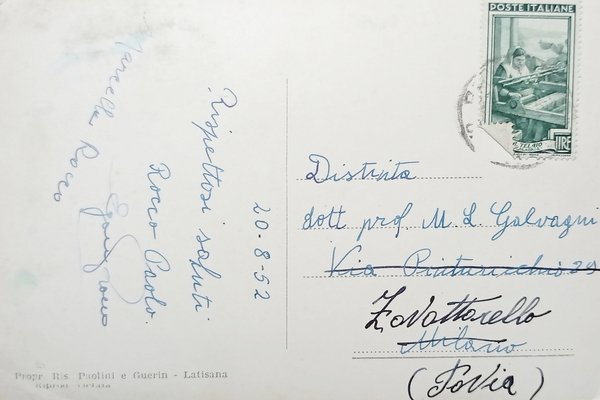 20-8-52
Rispettosi saluti
Rocco Paolo.
Marcella Rocco
POSTE ITALIANE
IL TELAIO
LIRE
Distinta
dott prof M. L Galvagni
Via Pinturicchio 29
Zavattarello
Milano
(PaVia)
Propr. Ris. Paolini e Guerin - Latisana